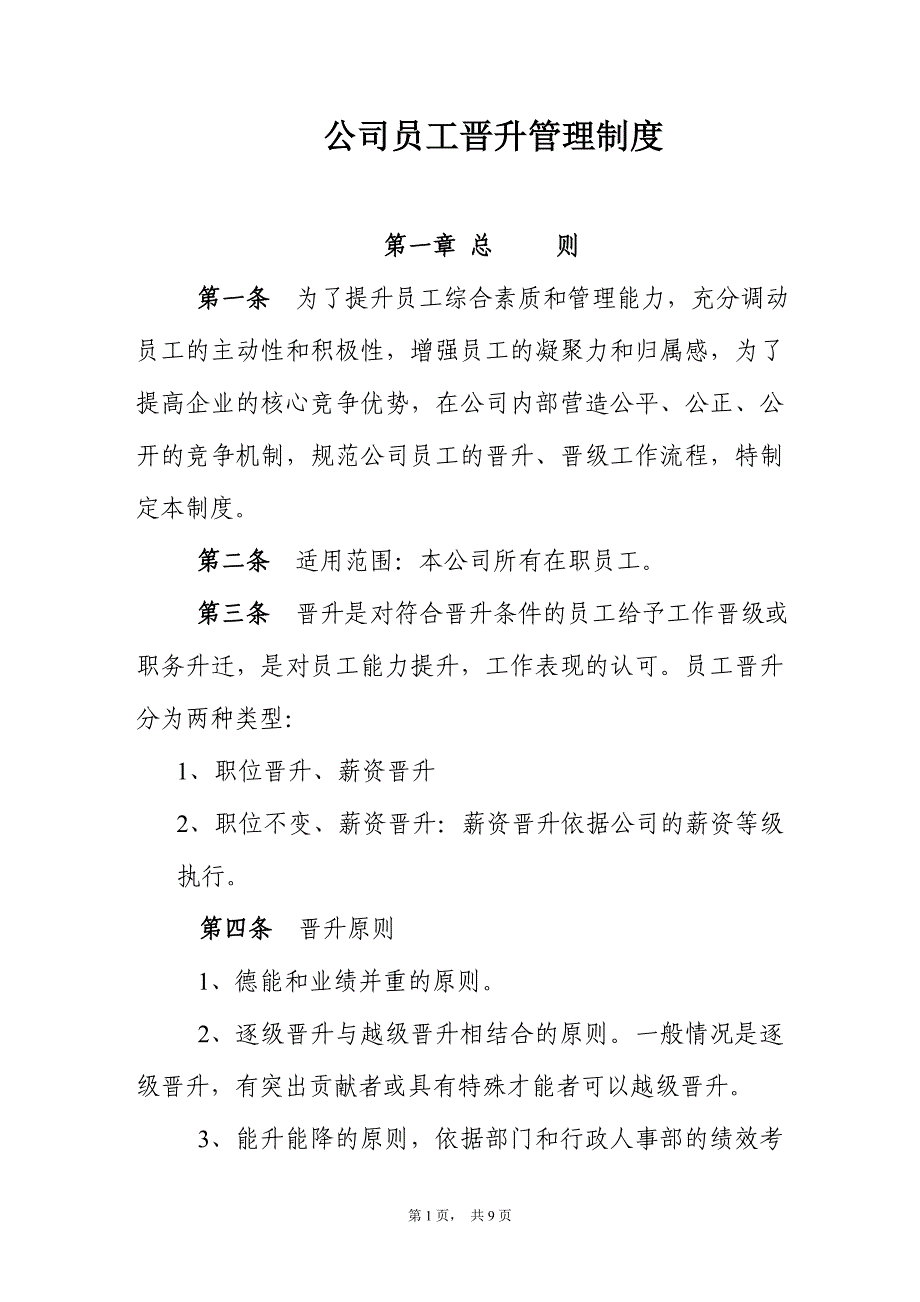 公司员工晋升管理制度
第一章 总 则
第一条 为了提升员工综合素质和管理能力，充分调动
员工的主动性和积极性，增强员工的凝聚力和归属感，为了
提高企业的核心竞争优势，在公司内部营造公平、公正、公
开的竞争机制，规范公司员工的晋升、晋级工作流程，特制
定本制度。
第二条 适用范围：本公司所有在职员工。
第三条 晋升是对符合晋升条件的员工给予工作晋级或
职务升迁，是对员工能力提升，工作表现的认可。员工晋升
分为两种类型：
1、职位晋升、薪资晋升
2、职位不变、薪资晋升：薪资晋升依据公司的薪资等级
执行。
第四条 晋升原则
1、德能和业绩并重的原则。
2、逐级晋升与越级晋升相结合的原则。一般情况是逐
级晋升，有突出贡献者或具有特殊才能者可以越级晋升。
3、能升能降的原则，依据部门和行政人事部的绩效考
第 1 页， 共 9 页